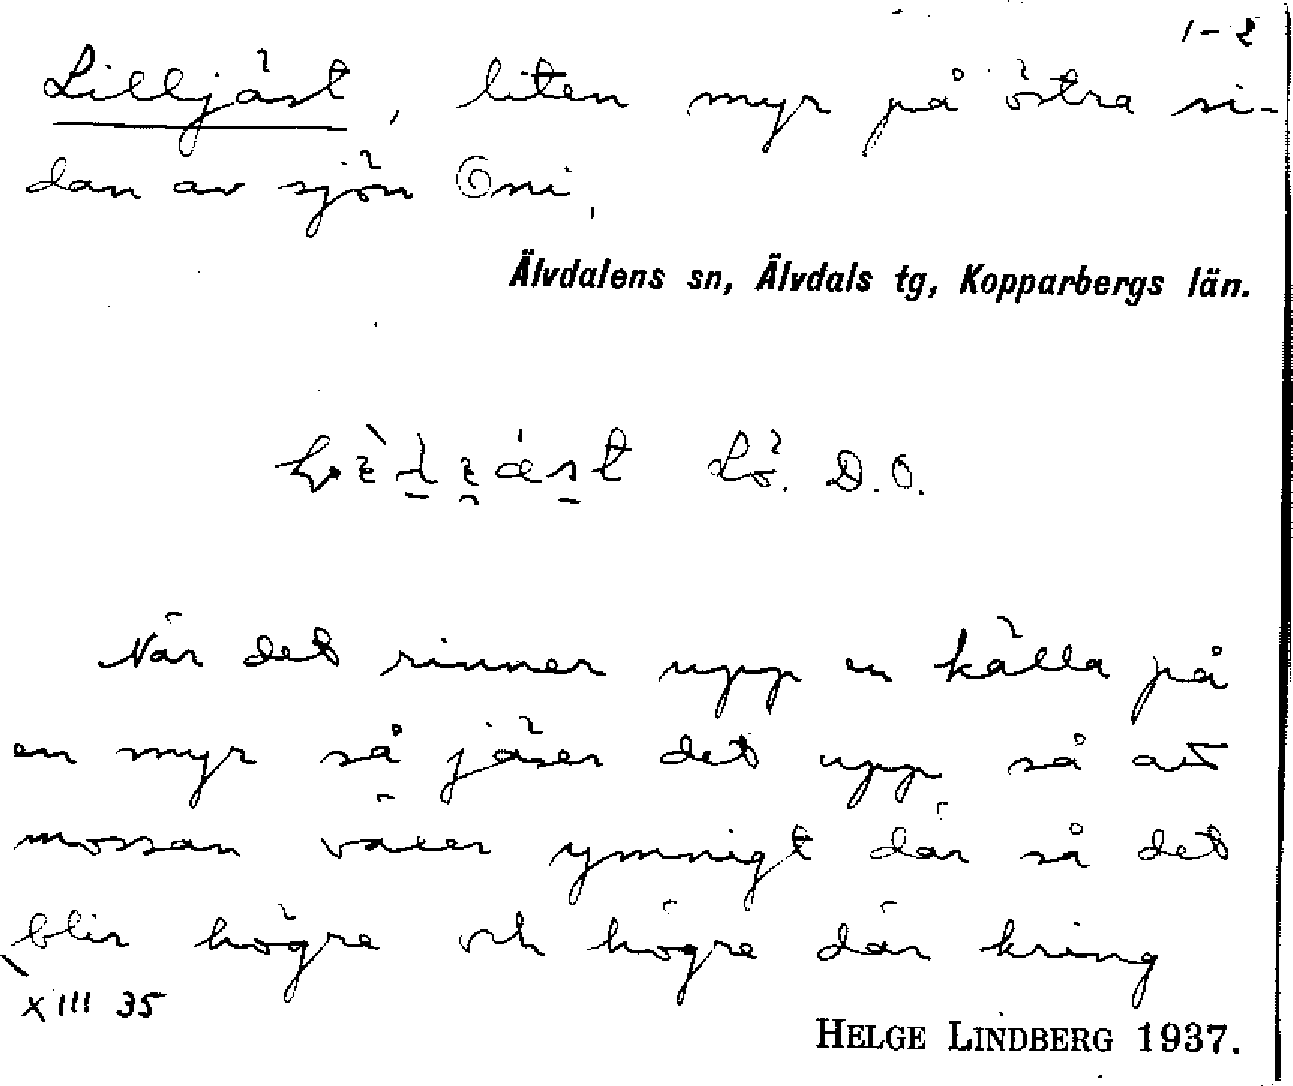 1-2
Lilljäst, liten myr på östra si-
dan av sjön Oni,
Älvdalens sn, Älvdals tg, Kopparbergs län.
Lö. D.O.
När det rinner upp en källa på
en myr så jäser det upp så att
mossan växer ymnigt där så det
blir högre och högre där kring
XIII 35
HELGE LINDBERG 1937.